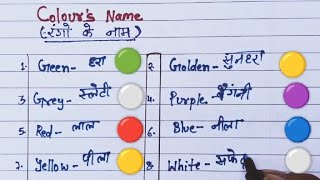 Colour's Name
(रंगो के नाम)
1. Green - हरा
2. Golden - सुनहरा
3. Grey - स्लेटी
4. Purple - बैंगनी
5. Red - लाल
6. Blue - नीला
7. Yellow - पीला
8. White - सफेद